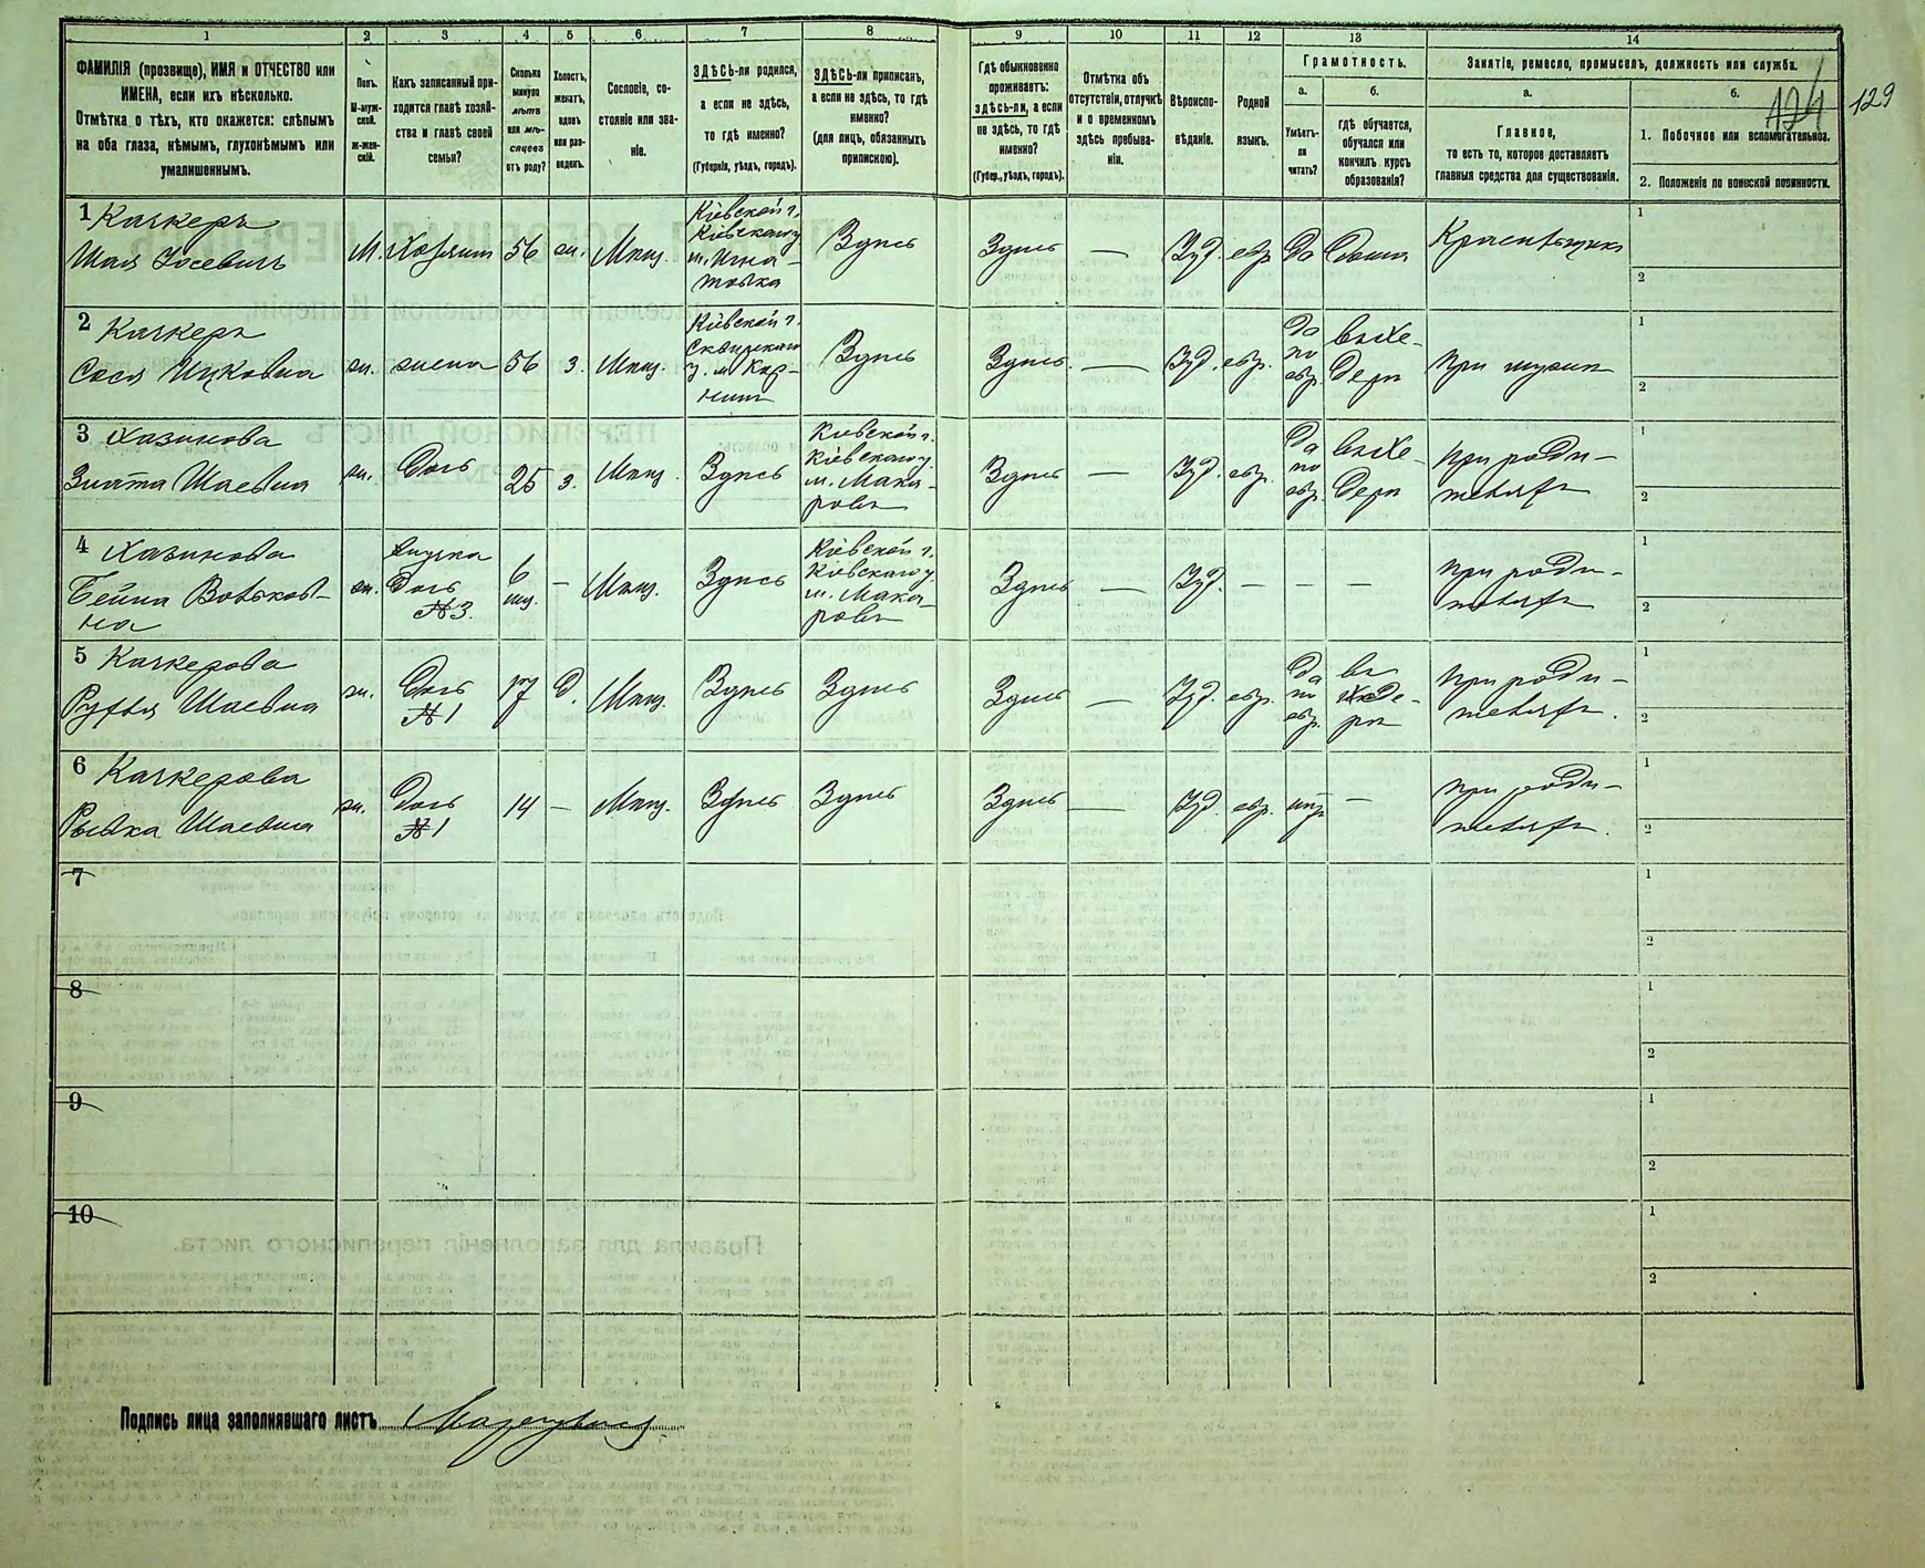 1 2 3 4 5 6 7 8 9 10 11 12 13 14
ФАМИЛІЯ (прозвище), ИМЯ и ОТЧЕСТВО или ИМЕНА, если ихъ нѣсколько.
Отмѣтка о тѣхъ, кто окажется: слѣпымъ на оба глаза, нѣмымъ, глухонѣмымъ или умалишеннымъ.
Полъ.
М-муж-
ской.
Ж-жен-
скій.
Какъ записанный при-
ходится главѣ хозяй-
ства и главѣ своей
семьи?
Сколько
минуло
лѣтъ
или мѣ-
сяцевъ
отъ роду?
Холостъ,
женатъ,
вдовъ
или раз-
веденъ.
Сословіе, со-
стояніе или зва-
ніе.
ЗДѢСЬ-ли родился,
а если не здѣсь,
то гдѣ именно?
(Губернія, уѣздъ, городъ).
ЗДѢСЬ-ли приписанъ,
а если не здѣсь, то гдѣ
именно?
(для лицъ, обязанныхъ
припискою).
Гдѣ обыкновенно
проживаетъ:
здѣсь-ли, а если
не здѣсь, то гдѣ
именно?
(Губер., уѣздъ, городъ).
Отмѣтка объ
отсутствіи, отлучкѣ
и о временномъ
здѣсь пребыва-
ніи.
Вѣроиспо-
вѣданіе.
Родной
языкъ.
Грамотность.
а.
Умѣетъ-
ли
читать?
б.
гдѣ обучается,
обучался или
кончилъ курсъ
образованія?
Занятіе, ремесло, промыселъ, должность или служба.
а.
Главное,
то есть то, которое доставляетъ
главныя средства для существованія.
б.
1. Побочное или вспомогательное.
2. Положеніе по воинской повинности.
124 129
1 Качкеръ
Шая Іосевичъ
М. Хозяинъ 56 ж. Мѣщ.
Кіевской г.
Кіевскаго у.
м. Игна-
товка
Здѣсь Здѣсь — Іуд. евр. Да Дома
1
2
2 Качкеръ
Сося Ицковна
ж. жена 56 з. Мѣщ.
Кіевской г.
Сквирскаго
у. м. Кор-
нинъ
Здѣсь Здѣсь. — Іуд. евр.
Да
по
евр.
въ Хе-
дерѣ
При мужѣ
1
2
3 Хазинова
Злата Шаевна
ж. Дочь 25 з. Мѣщ. Здѣсь
Кіевской г.
Кіевскаго у.
м. Мака-
ровъ
Здѣсь — Іуд. евр.
Да
по
евр.
въ Хе-
дерѣ
При роди-
теляхъ
1
2
4 Хазинова
Бейла Вольков-
на
ж.
внучка
Дочь
№3.
6
мц.
— Мѣщ. Здѣсь
Кіевской г.
Кіевскаго у.
м. Мака-
ровъ
Здѣсь — Іуд. — — —
При роди-
теляхъ
1
2
5 Качкерова
Рухля Шаевна
ж.
Дочь
№1
17 Д. Мѣщ. Здѣсь Здѣсь Здѣсь — Іуд. евр.
Да
по
евр.
въ
Хеде-
рѣ
При роди-
теляхъ.
1
2
6 Качкерова
Рывка Шаевна
ж.
Дочь
№1
14 — Мѣщ. Здѣсь Здѣсь Здѣсь — Іуд. евр. нѣтъ —
При роди-
теляхъ.
1
2
7
1
2
8
1
2
9
1
2
10
1
2
Подпись лица заполнявшаго листъ